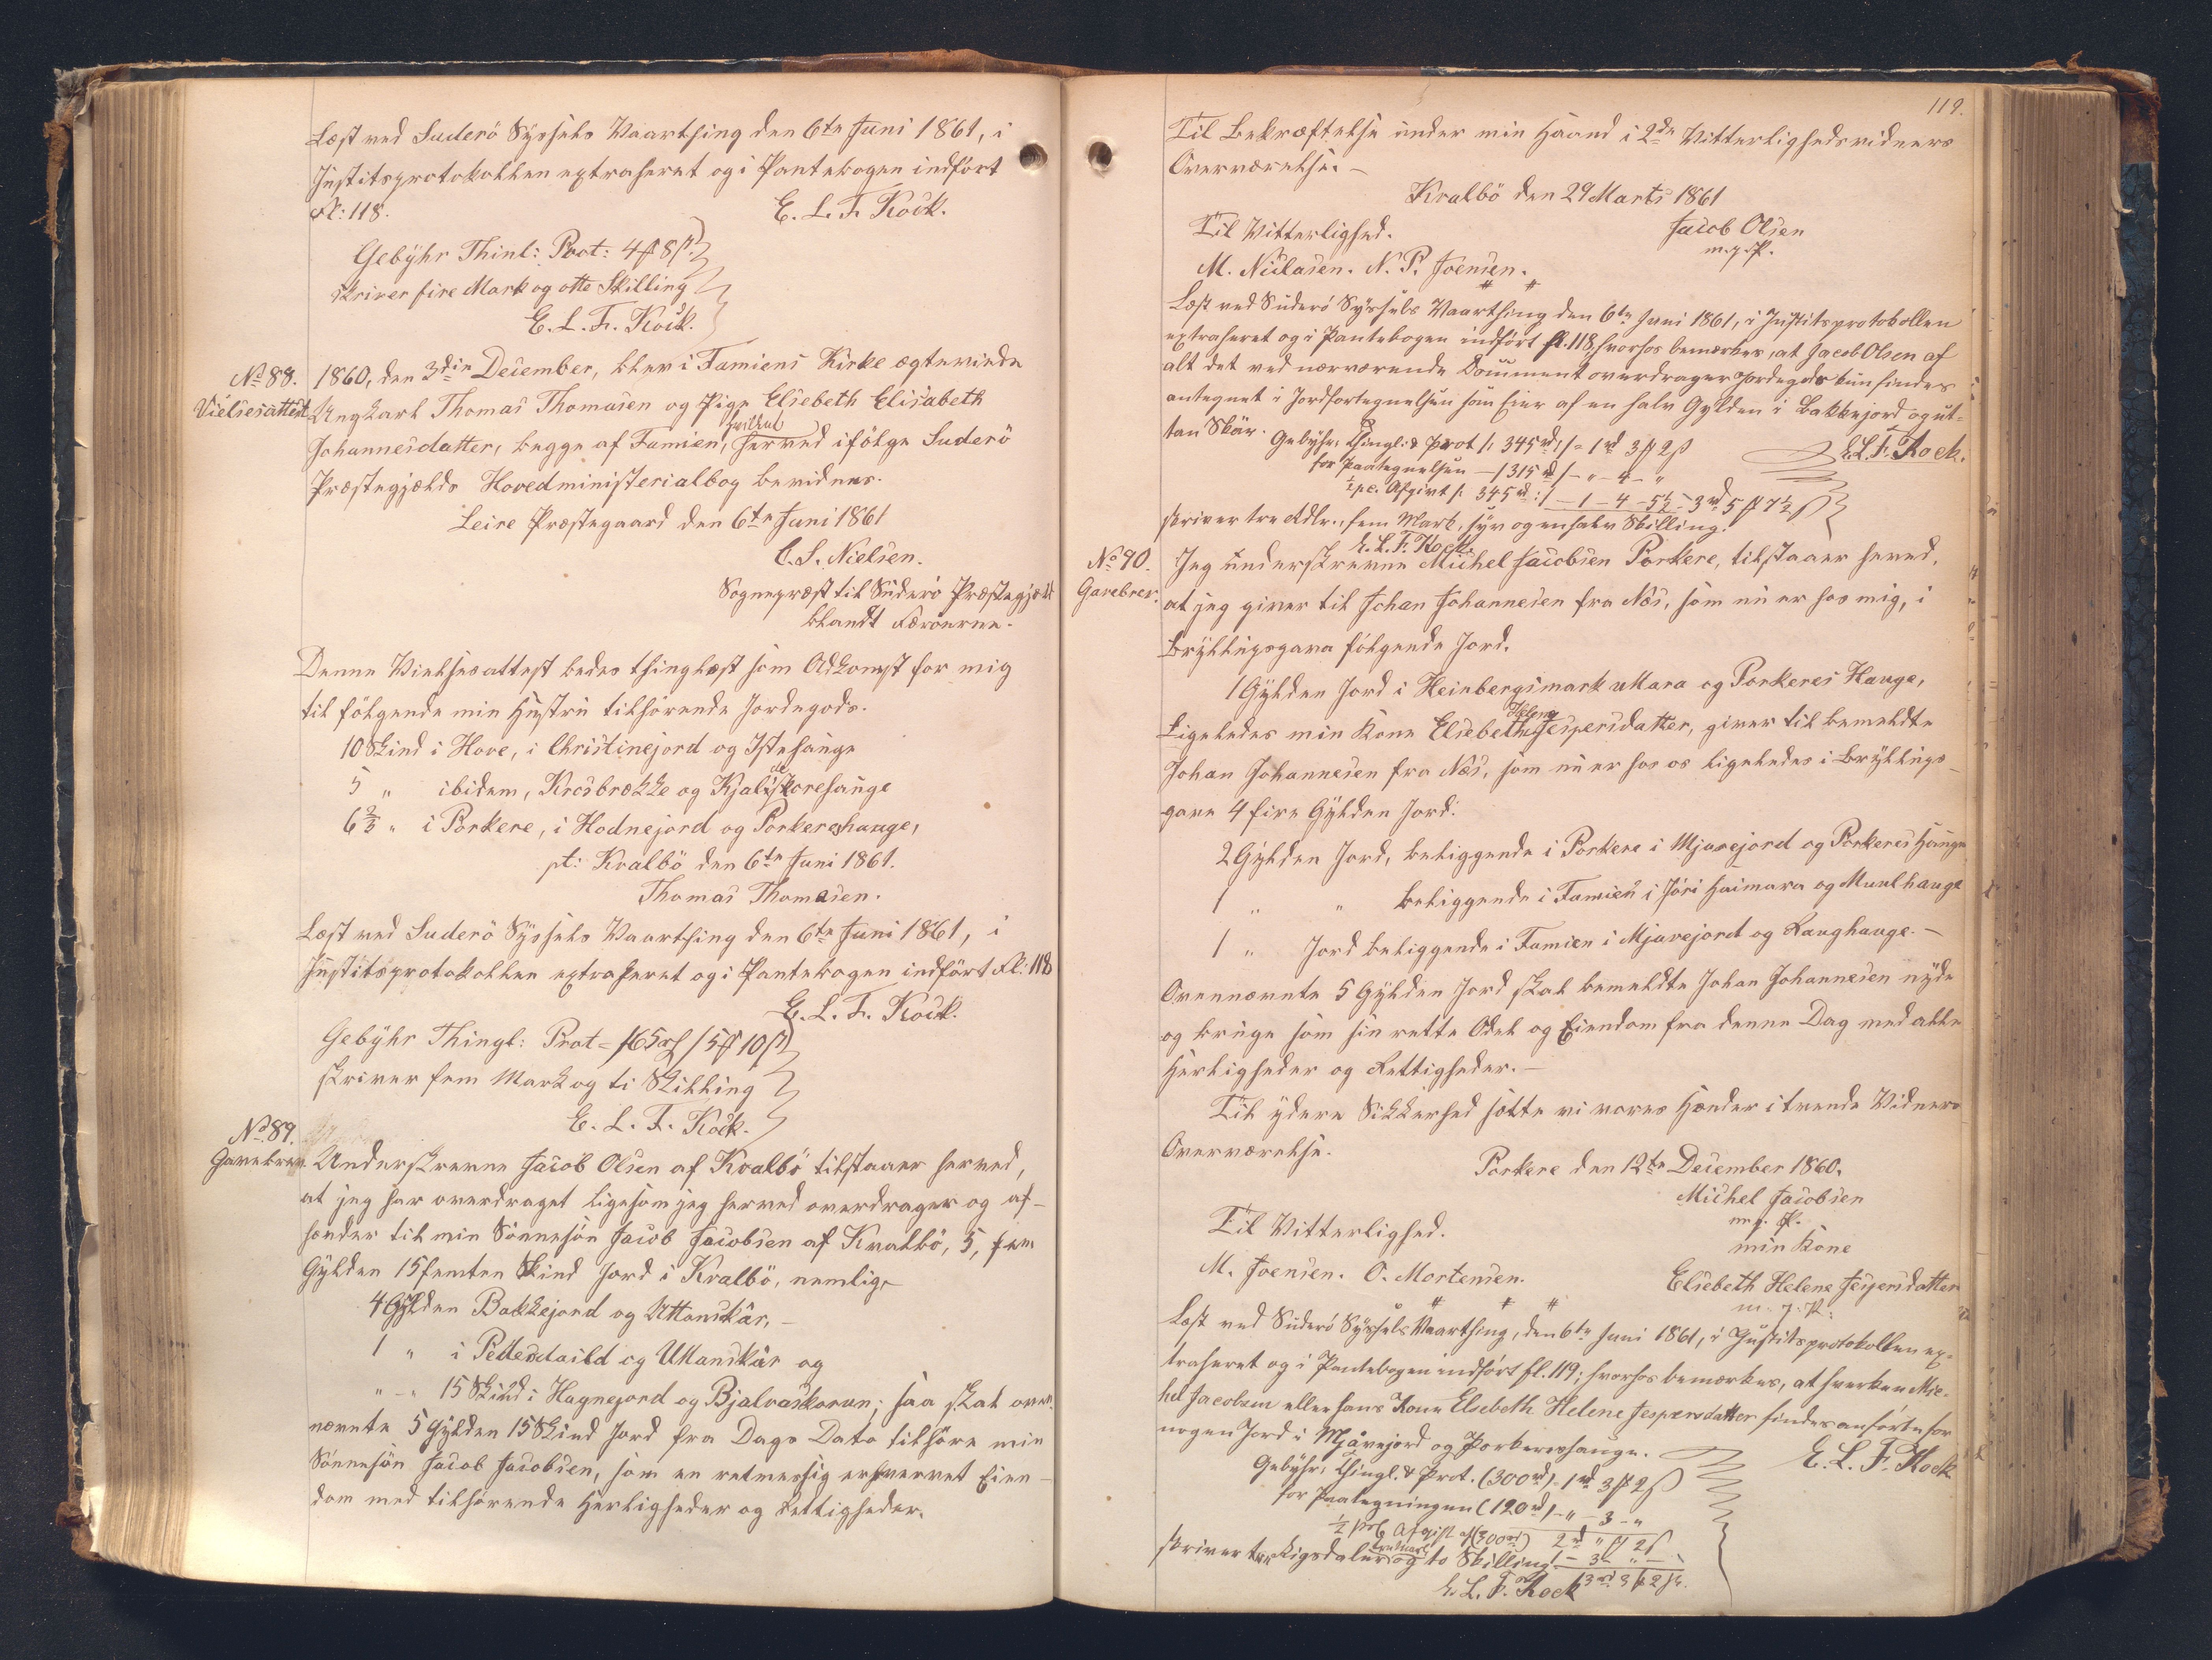 Læst ved Suderö Syssels Vaarthing den 6te Juni 1861, i
Justitsprotokollen extraheret og i Pantebogen indført
Fl: 118.
E. L. F. Kock.
Gebyhr Thinl: Prot: 4 ₰ 8 ß
skriver fire Mark og otte Skilling
E. L. F. Kock.
No 88.
Vielsesattest
1860, den 3die December, blev i Famiens Kirke ægteviede
Ungkarl Thomas Thomasen og Pige Elsebeth Elisabeth
Johannesdatter, begge af Famien, hvilket herved ifølge Suderö
Præstegjælds Hovedministerialbog bevidnes.
Leire Præstegaard den 6te Juni 1861
C. S. Nielsen.
Sognepræst til Suderö Præstegjæld
blandt Færöerne.
Denne Vielsesattest bedes thinglæst som Adkomst for mig
til følgende min Hustru tilhørende Jordegods.
10 Skind i Hove, i Christinejord og Istehauge
5 " ibidem, Krosbrekke og Kjalveskorehauge
6 2/3 " i Porkere, i Hodnejord og Porkereshauge,
pt: Kvalbö den 6te Juni 1861.
Thomas Thomasen.
Læst ved Suderö Syssels Vaarthing den 6te Juni 1861, i
Justitsprotokollen extraheret og i Pantebogen indført Fl: 118
E. L. F. Kock.
Gebyhr Thingl: Prot = /65 rd/ 5 ₰ 10 ß
skriver fem Mark og ti Skilling
E. L. F. Kock.
No 89.
Gavebrev.
Underskrevne Jacob Olsen af Kvalbö tilstaaer herved,
at jeg har overdraget ligesom jeg herved overdrager og af-
hænder til min Sönnesön Jacob Jacobsen af Kvalbö, 5, fem
Gylden 15 femten Skind Jord i Kvalbö, nemlig
4 Gylden Bakkejord og Uttanskär,
1 " i Pedersdaild og Uttanskär og
" - " 15 Skind i Hagnejord og Bjalvaskorun; saa skal oven-
nævnte 5 Gylden 15 Skind Jord fra Dags Dato tilhøre min
Sönnesön Jacob Jacobsen, som en retmessig erhvervet Eien-
dom med tilhørende Herligheder og Rettigheder.
119.
Til Bekræftelse under min Haand i 2de Vitterlighedsvidners
Overværelse.
Kvalbö den 29 Marts 1861
Til Vitterlighed.
Jacob Olsen
m. f. P.
M. Niclasen. N. P. Joensen.
Læst ved Suderö Syssels Vaarthing den 6te Juni 1861, i Justitsprotokollen
extraheret og i Pantebogen indført fl. 118, hvorhos bemærkes, at Jacob Olsen af
alt det ved nærværende Document overdragne Jordegods kun findes
antegnet i Jordfortegnelsen som Eier af en halv Gylden i Bakkejord og ut-
tan Skär.
E. L. F. Kock.
Gebyhr: Thingl: & Prot /: 345 rd :/ = 1 rd 3 ₰ 2 ß
for Paategnelsen - / 315 rd / - " - 4 - "
1/2 pc. Afgivt /: 345 rd :/ - 1 - 4 - 5 1/2 = 3 rd 5 ₰ 7 1/2 ß
skriver tre Rdlr., fem Mark, syv og en halv Skilling.
E. L. F. Kock.
No 90.
Gavebrev.
Jeg underskrevne Michel Jacobsen Porkere, tilstaaer herved,
at jeg giver til Johan Johannesen fra Næs, som nu er hos mig, i
Bryllupsgava følgende Jord.
1 Gylden Jord i Heinbergsmark uMara og Porkeres Hauge,
Ligeledes min Kone Elsebeth Helene Jespersdatter, giver til bemeldte
Johan Johannesen fra Næs, som nu er hos os ligeledes i Bryllups-
gave 4 fire Gylden Jord:
2 Gylden Jord, beliggende i Porkere i Mjavejord og Porkeres Hauge
1 " " beliggende i Famien i Jóri Haimara og Muulhauge
1 " Jord beliggende i Famien i Mjavejord og Laughauge.
Ovennævnte 5 Gylden Jord skal bemeldte Johan Johannesen nyde
og bruge som sin rette Odel og Eiendom fra denne Dag med alle
Herligheder og Rettigheder.
Til ydere Sikkerhed sætte vi vores Hænder i tvende Vidners
Overværelse.
Porkere den 12te December 1860.
Michel Jacobsen
m. f. P.
Til Vitterlighed.
min Kone
M. Joensen. O. Mortensen.
Elsebeth Helene Jespersdatter
m. f. P.
Læst ved Suderö Syssels Vaarthing, den 6te Juni 1861, i Justitsprotokollen ex-
traheret og i Pantebogen indført fl. 119; hvorhos bemærkes, at hverken Mic-
hel Jacobsen eller hans Kone Elsebeth Helene Jespersdatter findes anførte for
nogen Jord i Mjåvejord og Porkereshauge.
E. L. F. Kock
Gebyhr: Thingl. & Prot. (300 rd) - 1 rd 3 ₰ 2 ß
for Paategningen (120 rd) - " - 3 - "
2 rd " ₰ 2 ß
1/2 pCt Afgift af (300 rd) 1 - 3 - " -
3 rd 3 ₰ 2 ß.
skriver tre Rigsdaler tre Mark og to Skilling.
E. L. F. Kock